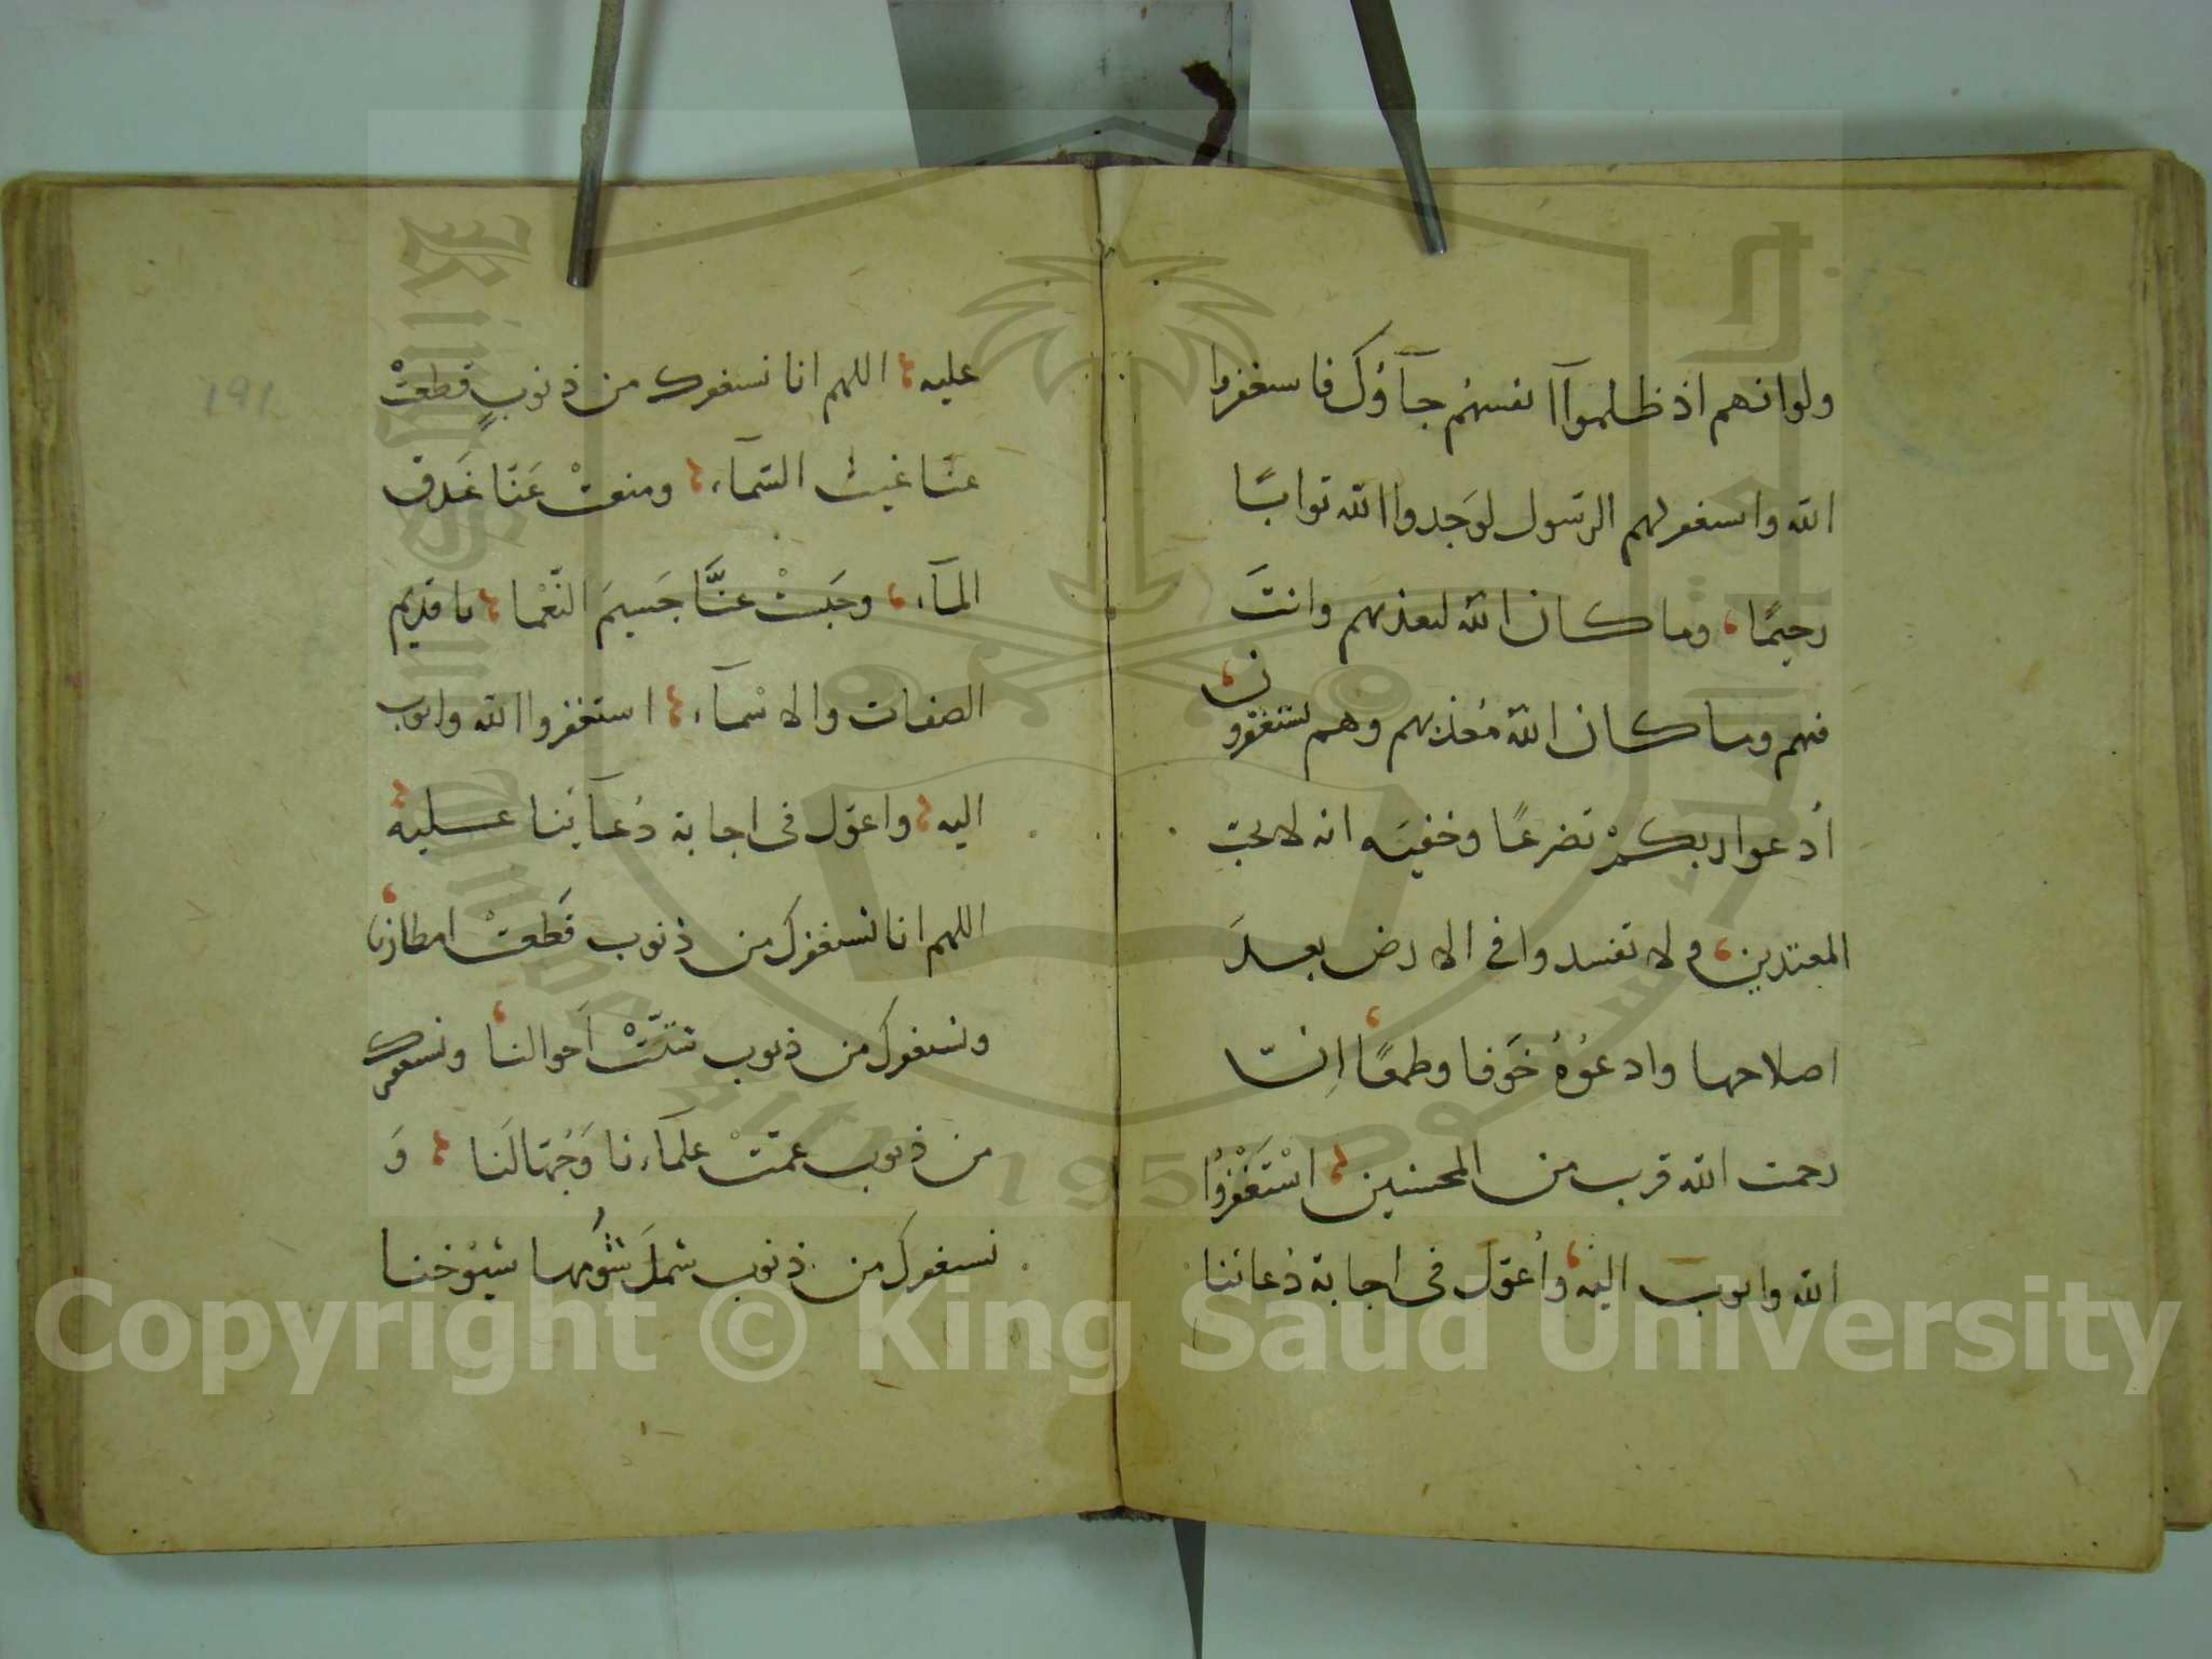 ولوانهم اذ ظلموآ انفسهُم جآؤك فاسغفروا
الله واسغفر لهم الرسول لوَجدوا الله توابًا
رحيمًا، وما كان الله ليعذبهم وانتَ
فيهم وما كان الله مُعذبهم وهم يستغفرون
أدعوا ربكمْ تضرعًا وخفيَه انه لا يحبّ
المعتدين، ولا تفسدوا في الارض بعدَ
اصلاحها وادعوُهُ خَوفا وطمعًا، اِنّ
رحمت الله قريب من المحسنين؛ اسْتَغْفِرُوا
الله واتوب اليه، وأعوّل في اجابة دُعائنا
عليه؛ اللهم انا نسغفرك من ذنوبٍ قطعتْ
عنّا غيث السّمآء؛ ومنعتْ عَنّا غَدق
المآء، وحَبستْ عنَّا جَسيمَ النّعْما؛ يا قديم
الصفات والاسْمآء؛ استغفروا الله واتوب
اليه؛ واعوّل في اجابة دُعآئنا عليه؛
اللهم انا نستغفرك من ذنوب قَطعتْ امطارنا،
ونستغفرك من ذنوب شتّتْ اَحوالنا، ونسغفرك
من ذنوب عمّتْ علمآءنا وَجُهّالنَا؛ وَ
نسغفرك من ذنوب شملَ شُومُها شيُوْخنا
191
Copyright © King Saud University
King Saud University
جامعة الملك سعود
1957